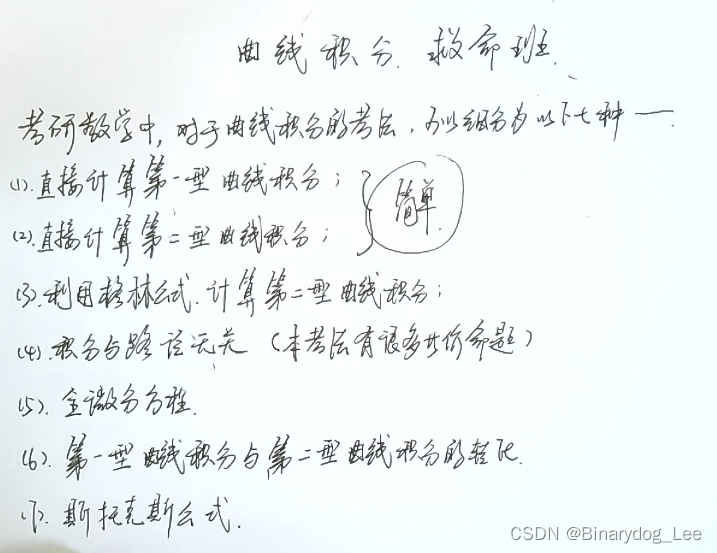 曲线积分 救命班
考研数学中,对于曲线积分的考法,可以细分为以下七种——
(1).直接计算第一型曲线积分;
(2).直接计算第二型曲线积分;
简单.
(3).利用格林公式.计算第二型曲线积分;
(4).积分与路径无关(本考法有很多等价命题)
(5).全微分方程.
(6).第一型曲线积分与第二型曲线积分的转化.
(7).斯托克斯公式.
CSDN @Binarydog_Lee